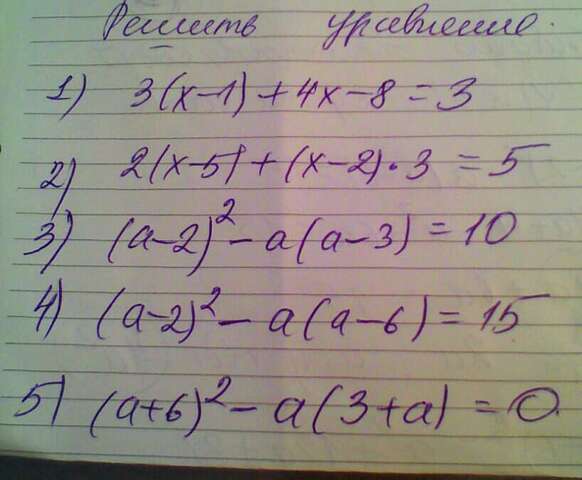 Решить уравнение.
1) 3(x-1)+4x-8=3
2) 2(x-5)+(x-2)·3=5
3) (a-2)²-a(a-3)=10
4) (a-2)²-a(a-6)=15
5) (a+6)²-a(3+a)=0